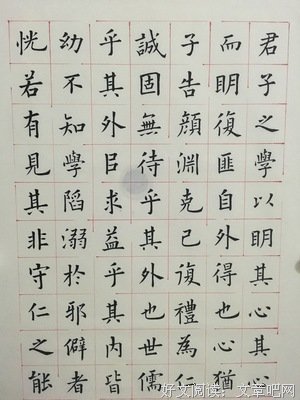 君子之學以明其心其心
而明復匪自外得也心猶
子告顏淵克己復禮為仁
誠固無待乎其外也世儒
乎其外㠯求益乎其內皆
幼不知學陷溺於邪僻者
恍若有見其非守仁之能
好文阅读：文章吧网